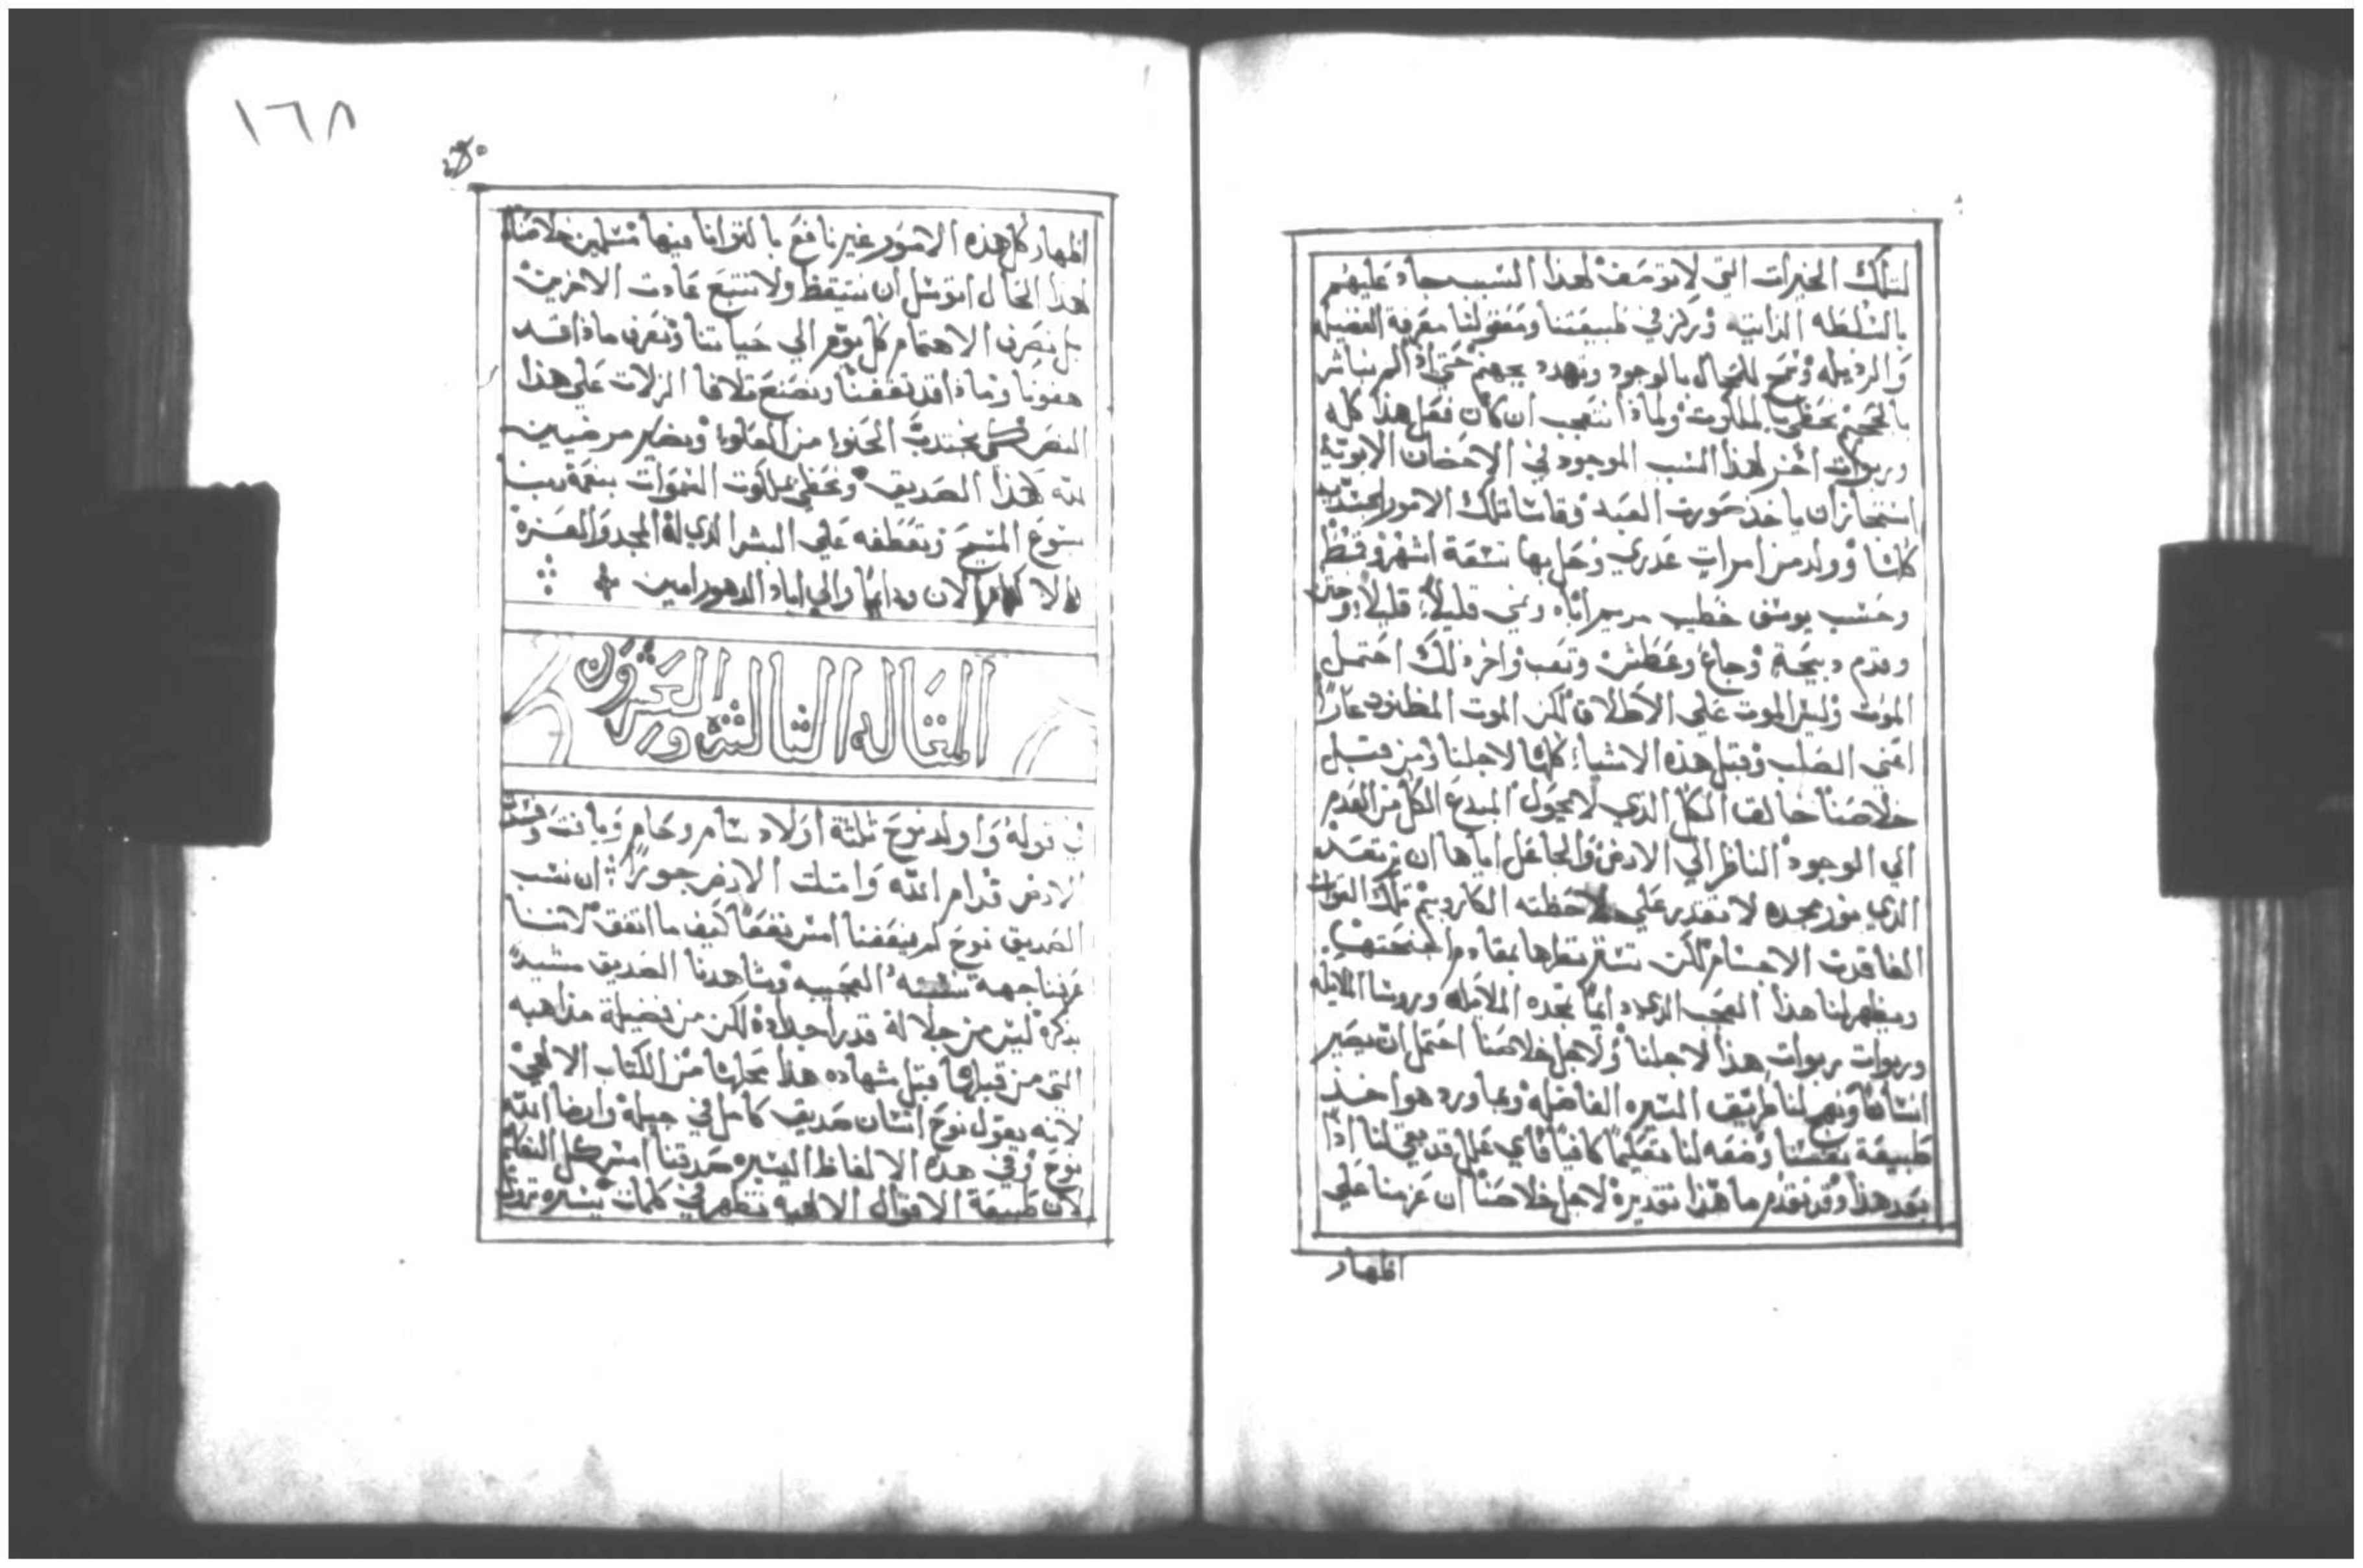 لتلك الخيرات التي لا توصف لهذا السبب جاد عليهم
بالسلطه الذاتيه وركز في طبيعتنا ومعقولنا معرفة الفضيله
والرذيله وسمح للمحال بالوجود وتهدد بجهنم حتي اذا لم نباشر
بالجحيم نحظي بالملكوت ولماذا نتعجب ان كان فعل هذا كله
وربوات اخر لهذا السبب الموجود في الاحضان الابويه
استجاز ان ياخذ صورت العبد وقاسا تلك الامور الجسديه
كلها وولد من امرات عدري وحل بها تسعة اشهر وقمط
وحسب يوسف خطيب مريم اباه ونمي قليلا قليلا وختن
وقدم دبيحة وجاع وعطش وتعب واخر ذلك احتمل
الموت وليس الموت علي الاطلاق لكن الموت المظنون عارا
اعني الصلب وقبل هذه الاشيا كلها لاجلنا ومن قبل
خلاصنا خالق الكل الذي لا يحول المبدع الكل من العدم
الي الوجود الناظر الي الارض والجاعل اياها ان ترتعد
الذي نور مجده لا تقدر علي ملاحظته الكاروبيم تلك القوات
الفاقدت الاجسام لكن تستر منظرها بمقادم اجنحتها
ويظهر لنا هذا العجب الذي دايما تمجده الملايكه وروسا الملايكه
وربوات ربوات هذا لاجلنا ولاجل خلاصنا احتمل ان يصير
انسانا ونهج لنا طريق السيره الفاضله وبما ورد هو اخذ
طبيعة نفسنا وضعه لنا تعليما كافيا فاي علل قد بقي لنا اذا
بعد هذا وقد تقدم ما هذا تقديره لاجل خلاصنا ان عزمنا علي
اظهار
١٦٨
اظهار كل هذه الامور غير نافع بالتوانا فيها مسلمين خلاصنا
هذا الحال اتوسل ان نستيقظ ولا نتبع عادت الاخرين
بل نصرف الاهتمام كل يوم الي حياتنا ونعرف ماذا قد
هفونا وماذا قد نفعنا ونصنع تلافا الزلات علي هذا
النصر كي نجتدب الحنوا من العلوا ونصير مرضيين
لله كهذا الصديق ونحظي بملكوت السموات بنعمة ربنا
يسوع المسيح وتعطفه علي البشر الذي له المجد والعزه
والاكرام الان ودايما والي اباد الدهور امين
المقاله الثالثه والعشرون
في قوله واولد نوح ثلثة اولاد سام وحام ويافت وفسدت
الارض قدام الله وامتلت الارض جورا ان نسب
الصديق نوح لم ينفعنا امس نفعا كيف ما اتفق لاننا
عرفنا جهة نسبته العجيبه وشاهدنا الصديق مشيدا
بذكره ليس من جلالة قدر اجداده لكن من فضيلة مذاهبه
التي من قبلها قبل شهاده هذا محلها من الكتاب الالهي
لانه يقول نوح انسان صديق كامل في جيله وارضا الله
نوح وفي هذه الالفاظ اليسيره صدقنا امس كل التعليم
لان طبيعة الاقوال الالهيه تظهر في كلمات يسيره ثروة